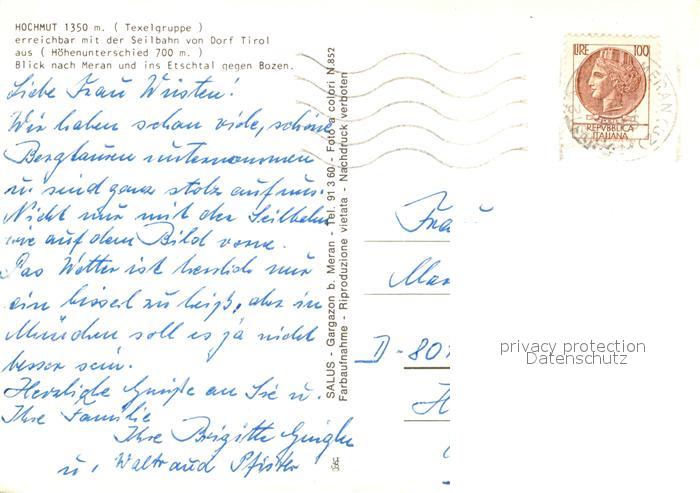 HOCHMUT 1350 m. ( Texelgruppe )
erreichbar mit der Seilbahn von Dorf Tirol
aus ( Höhenunterschied 700 m. )
Blick nach Meran und ins Etschtal gegen Bozen.
Liebe Frau
Wir haben schon viele, schöne
Bergtouren unternommen
u. sind ganz stolz auf uns.
Nicht nur mit der Seilbahn
wie auf dem Bild vorne.
Das Wetter ist herrlich nur
ein bisserl zu heiß, aber in
München soll es ja nicht
besser sein.
Herzliche Grüße an Sie u.
Ihre Familie
Ihre Brigitte
u. Waltraud Pfister
SALUS - Gargazon b. Meran - Tel. 91 3 60 - Foto a colori N.852
Farbaufnahme - Riproduzione vietata - Nachdruck verboten
LIRE 100
REPVBBLICA
ITALIANA
MERANO
Frau
D-80
privacy protection
Datenschutz